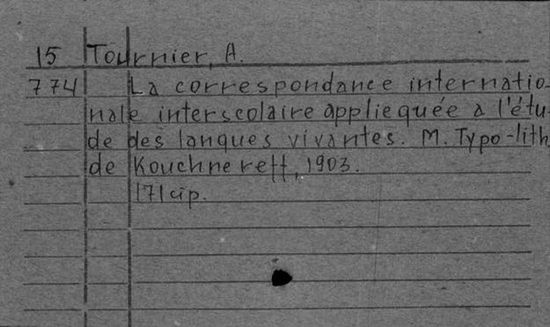 15 Tournier, A.
774 La correspondance internatio-
nale interscolaire appliequée a l'étu-
de des langues vivantes. M. Typo-lith
de Kouchnereff, 1903.
171 cip.